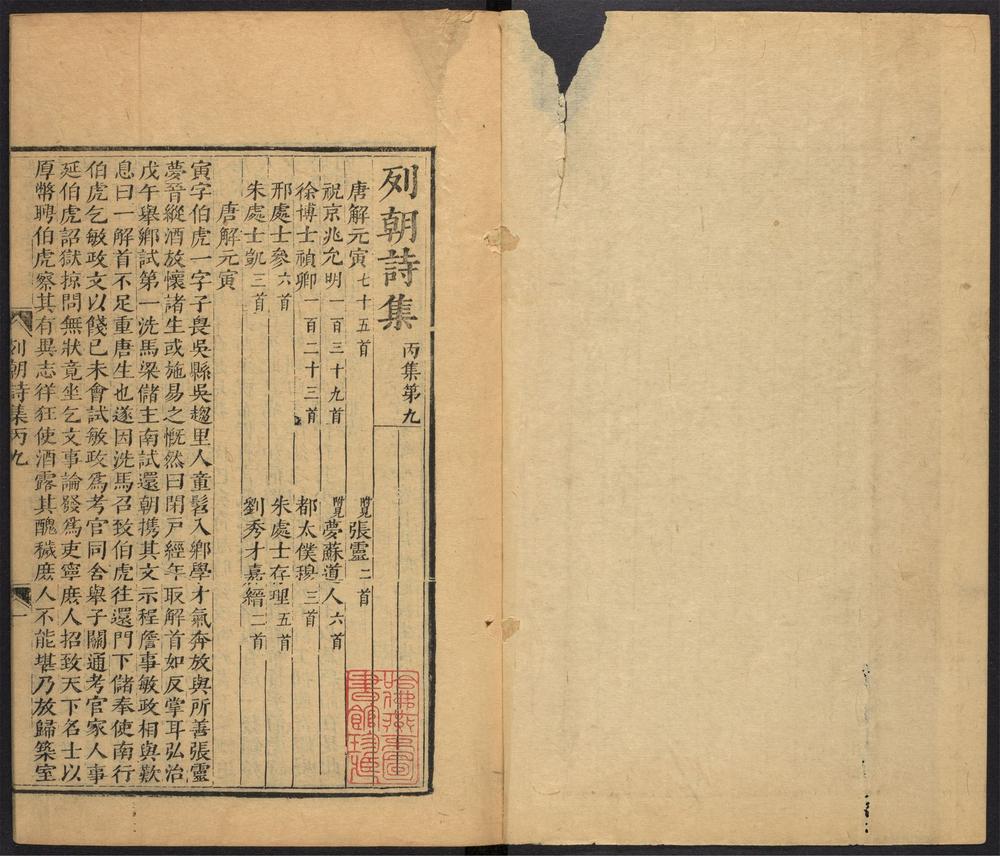 列朝詩集 丙集第九
唐解元寅七十五首 附見張靈二首
祝京兆允明一百三十九首 附見夢蘇道人六首
徐博士禎卿一百二十三首 都太僕穆三首
邢處士參六首 朱處士存理五首
朱處士凱三首 劉秀才嘉縉二首
唐解元寅
寅字伯虎一字子畏吳縣吳趨里人童髫入鄉學才氣奔放與所善張靈
夢晉縱酒放懷諸生或施易之慨然曰閉戸經年取解首如反掌耳弘治
戊午舉鄉試第一洗馬梁儲主南試還朝携其文示程詹事敏政相與歎
息曰一解首不足重唐生也遂因洗馬召致伯虎往還門下儲奉使南行
伯虎乞敏政文以餞已未會試敏政爲考官同舍舉子關通考官家人事
延伯虎詔獄掠問無狀竟坐乞文事論發爲吏寧庶人招致天下名士以
厚幣聘伯虎察其有異志徉狂使酒露其醜穢庶人不能堪乃放歸築室
列朝詩集丙九
一
哈佛燕京圖
書館珍藏